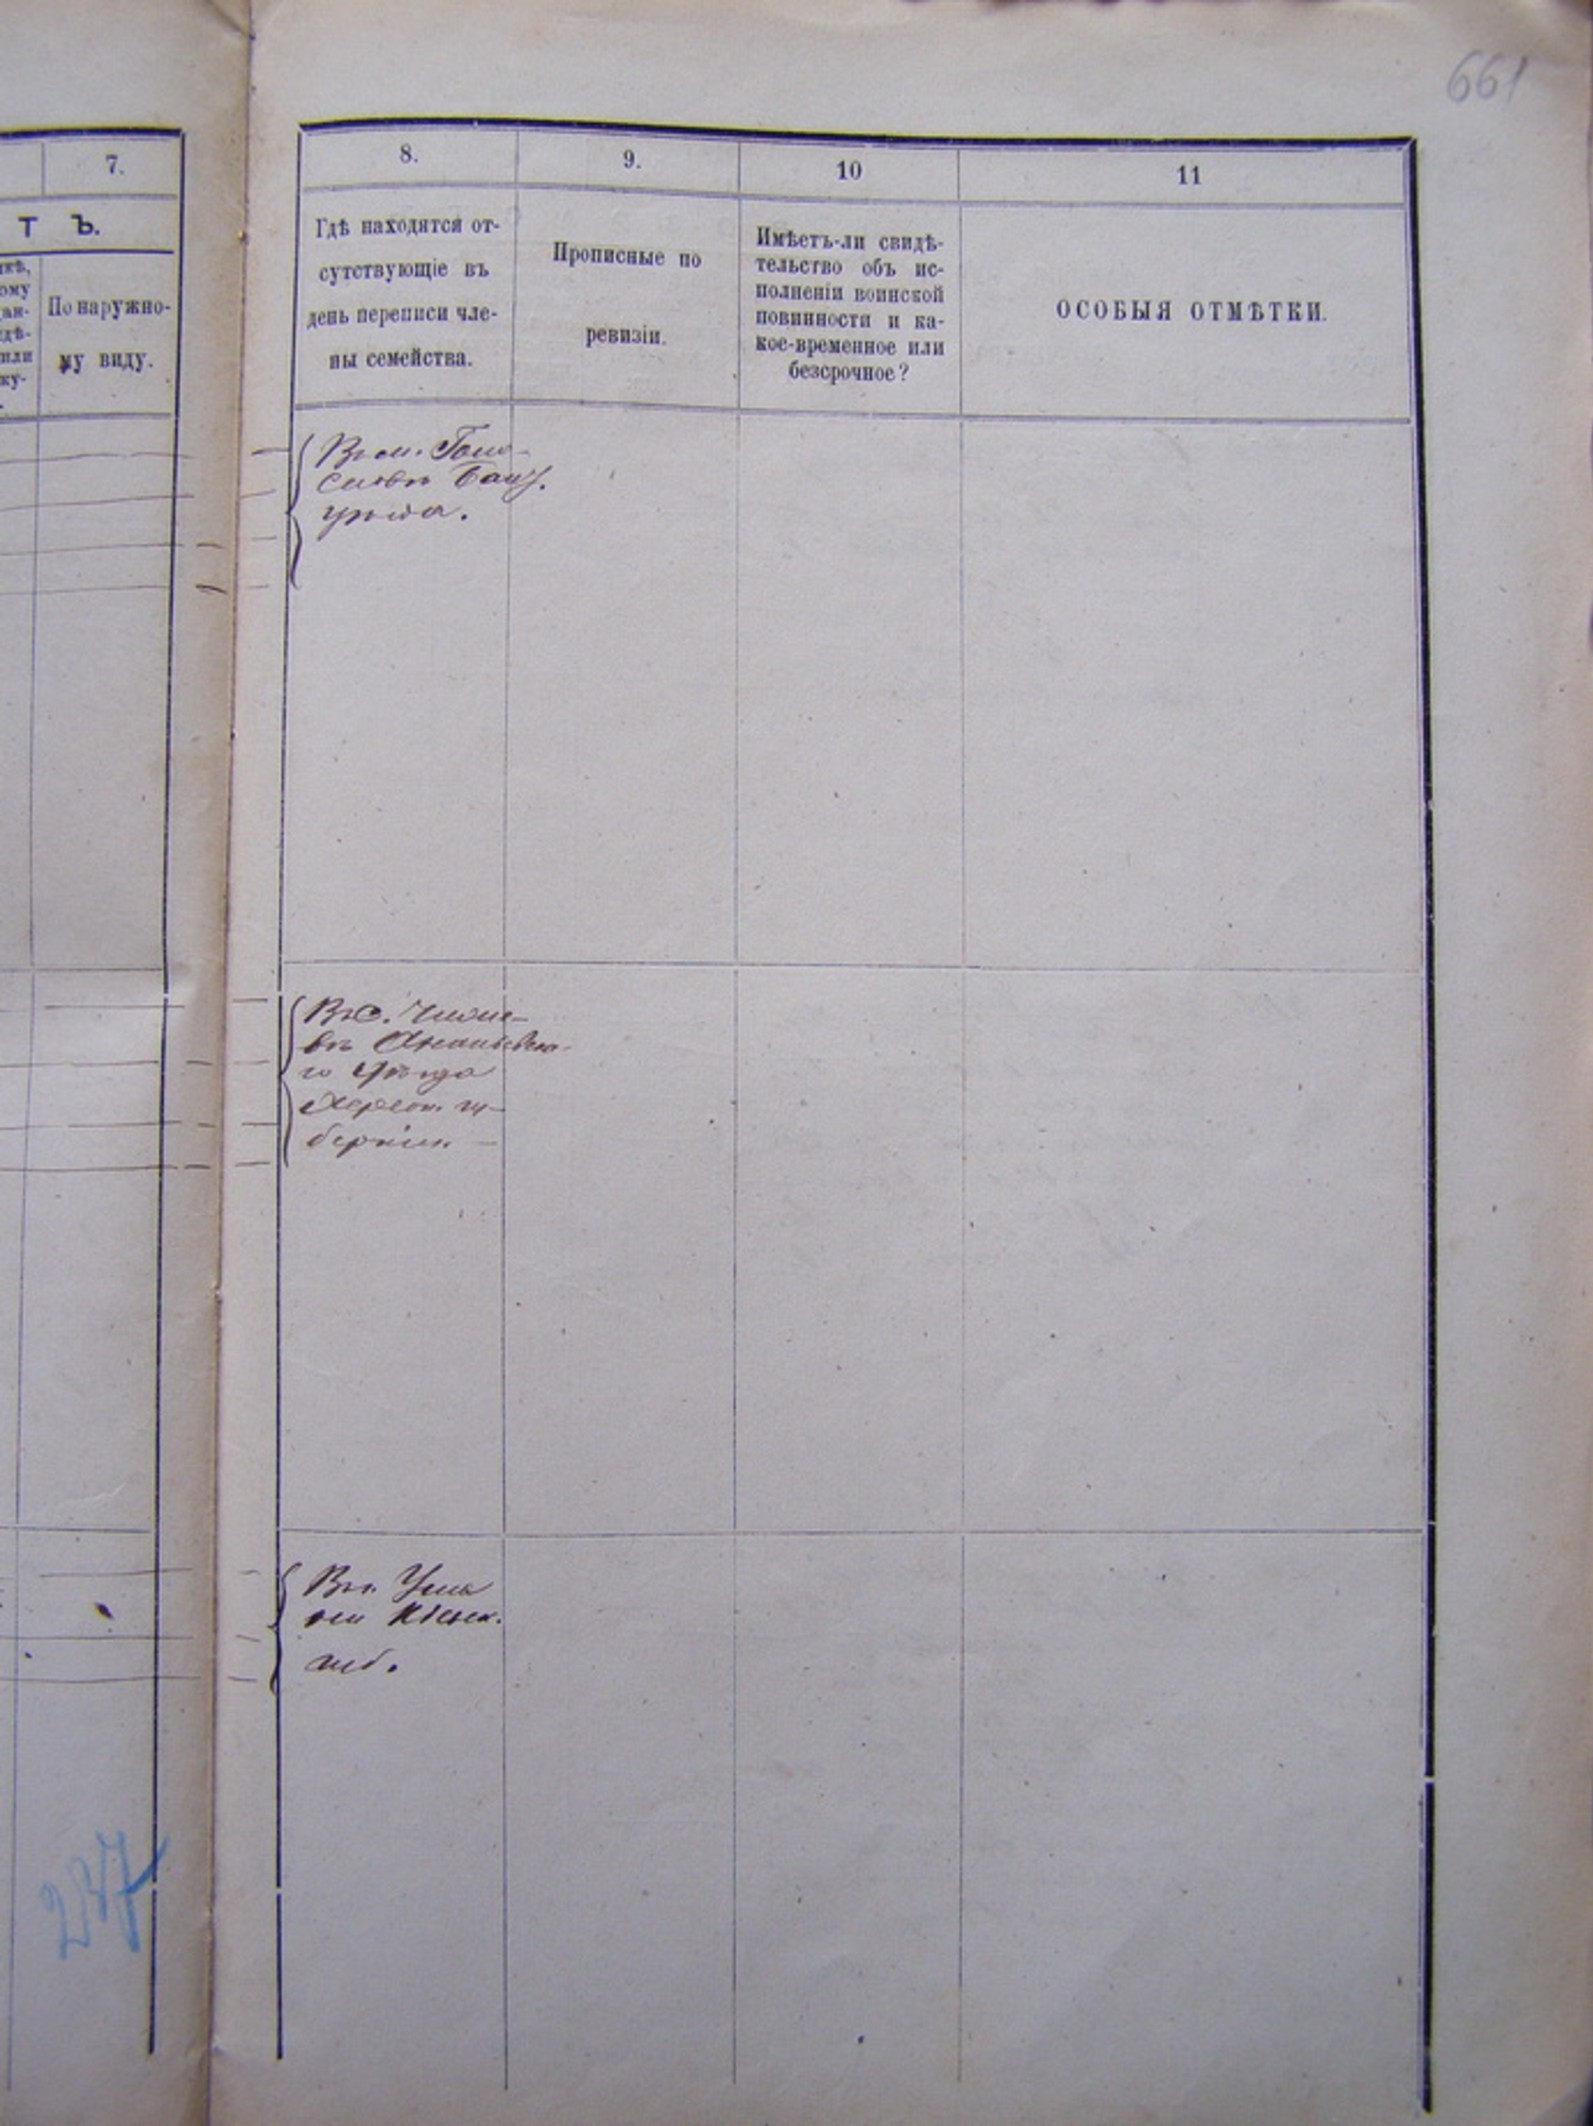 661
7.
Т Ъ.
По наружно-
му виду.
8.
Гдѣ находятся от-
сутствующіе въ
день переписи чле-
ны семейства.
9.
Прописные по
ревизіи.
10
Имѣетъ-ли свидѣ-
тельство объ ис-
полненіи воинской
повинности и ка-
кое-временное или
безсрочное?
11
ОСОБЫЯ ОТМѢТКИ.
Въ м.
уѣзда.
Въ с.
въ Ананьевска-
го уѣзда
Херсон. гу-
берніи
Въ Ума
ни Кіевск.
губ.
237